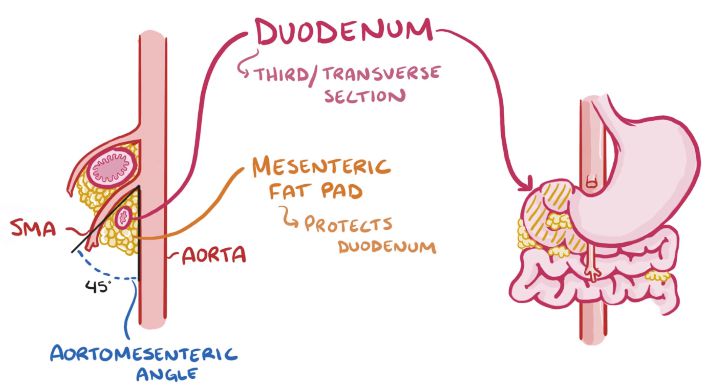 DUODENUM
THIRD/TRANSVERSE
SECTION
MESENTERIC
FAT PAD
PROTECTS
DUODENUM
SMA
AORTA
45°
AORTOMESENTERIC
ANGLE